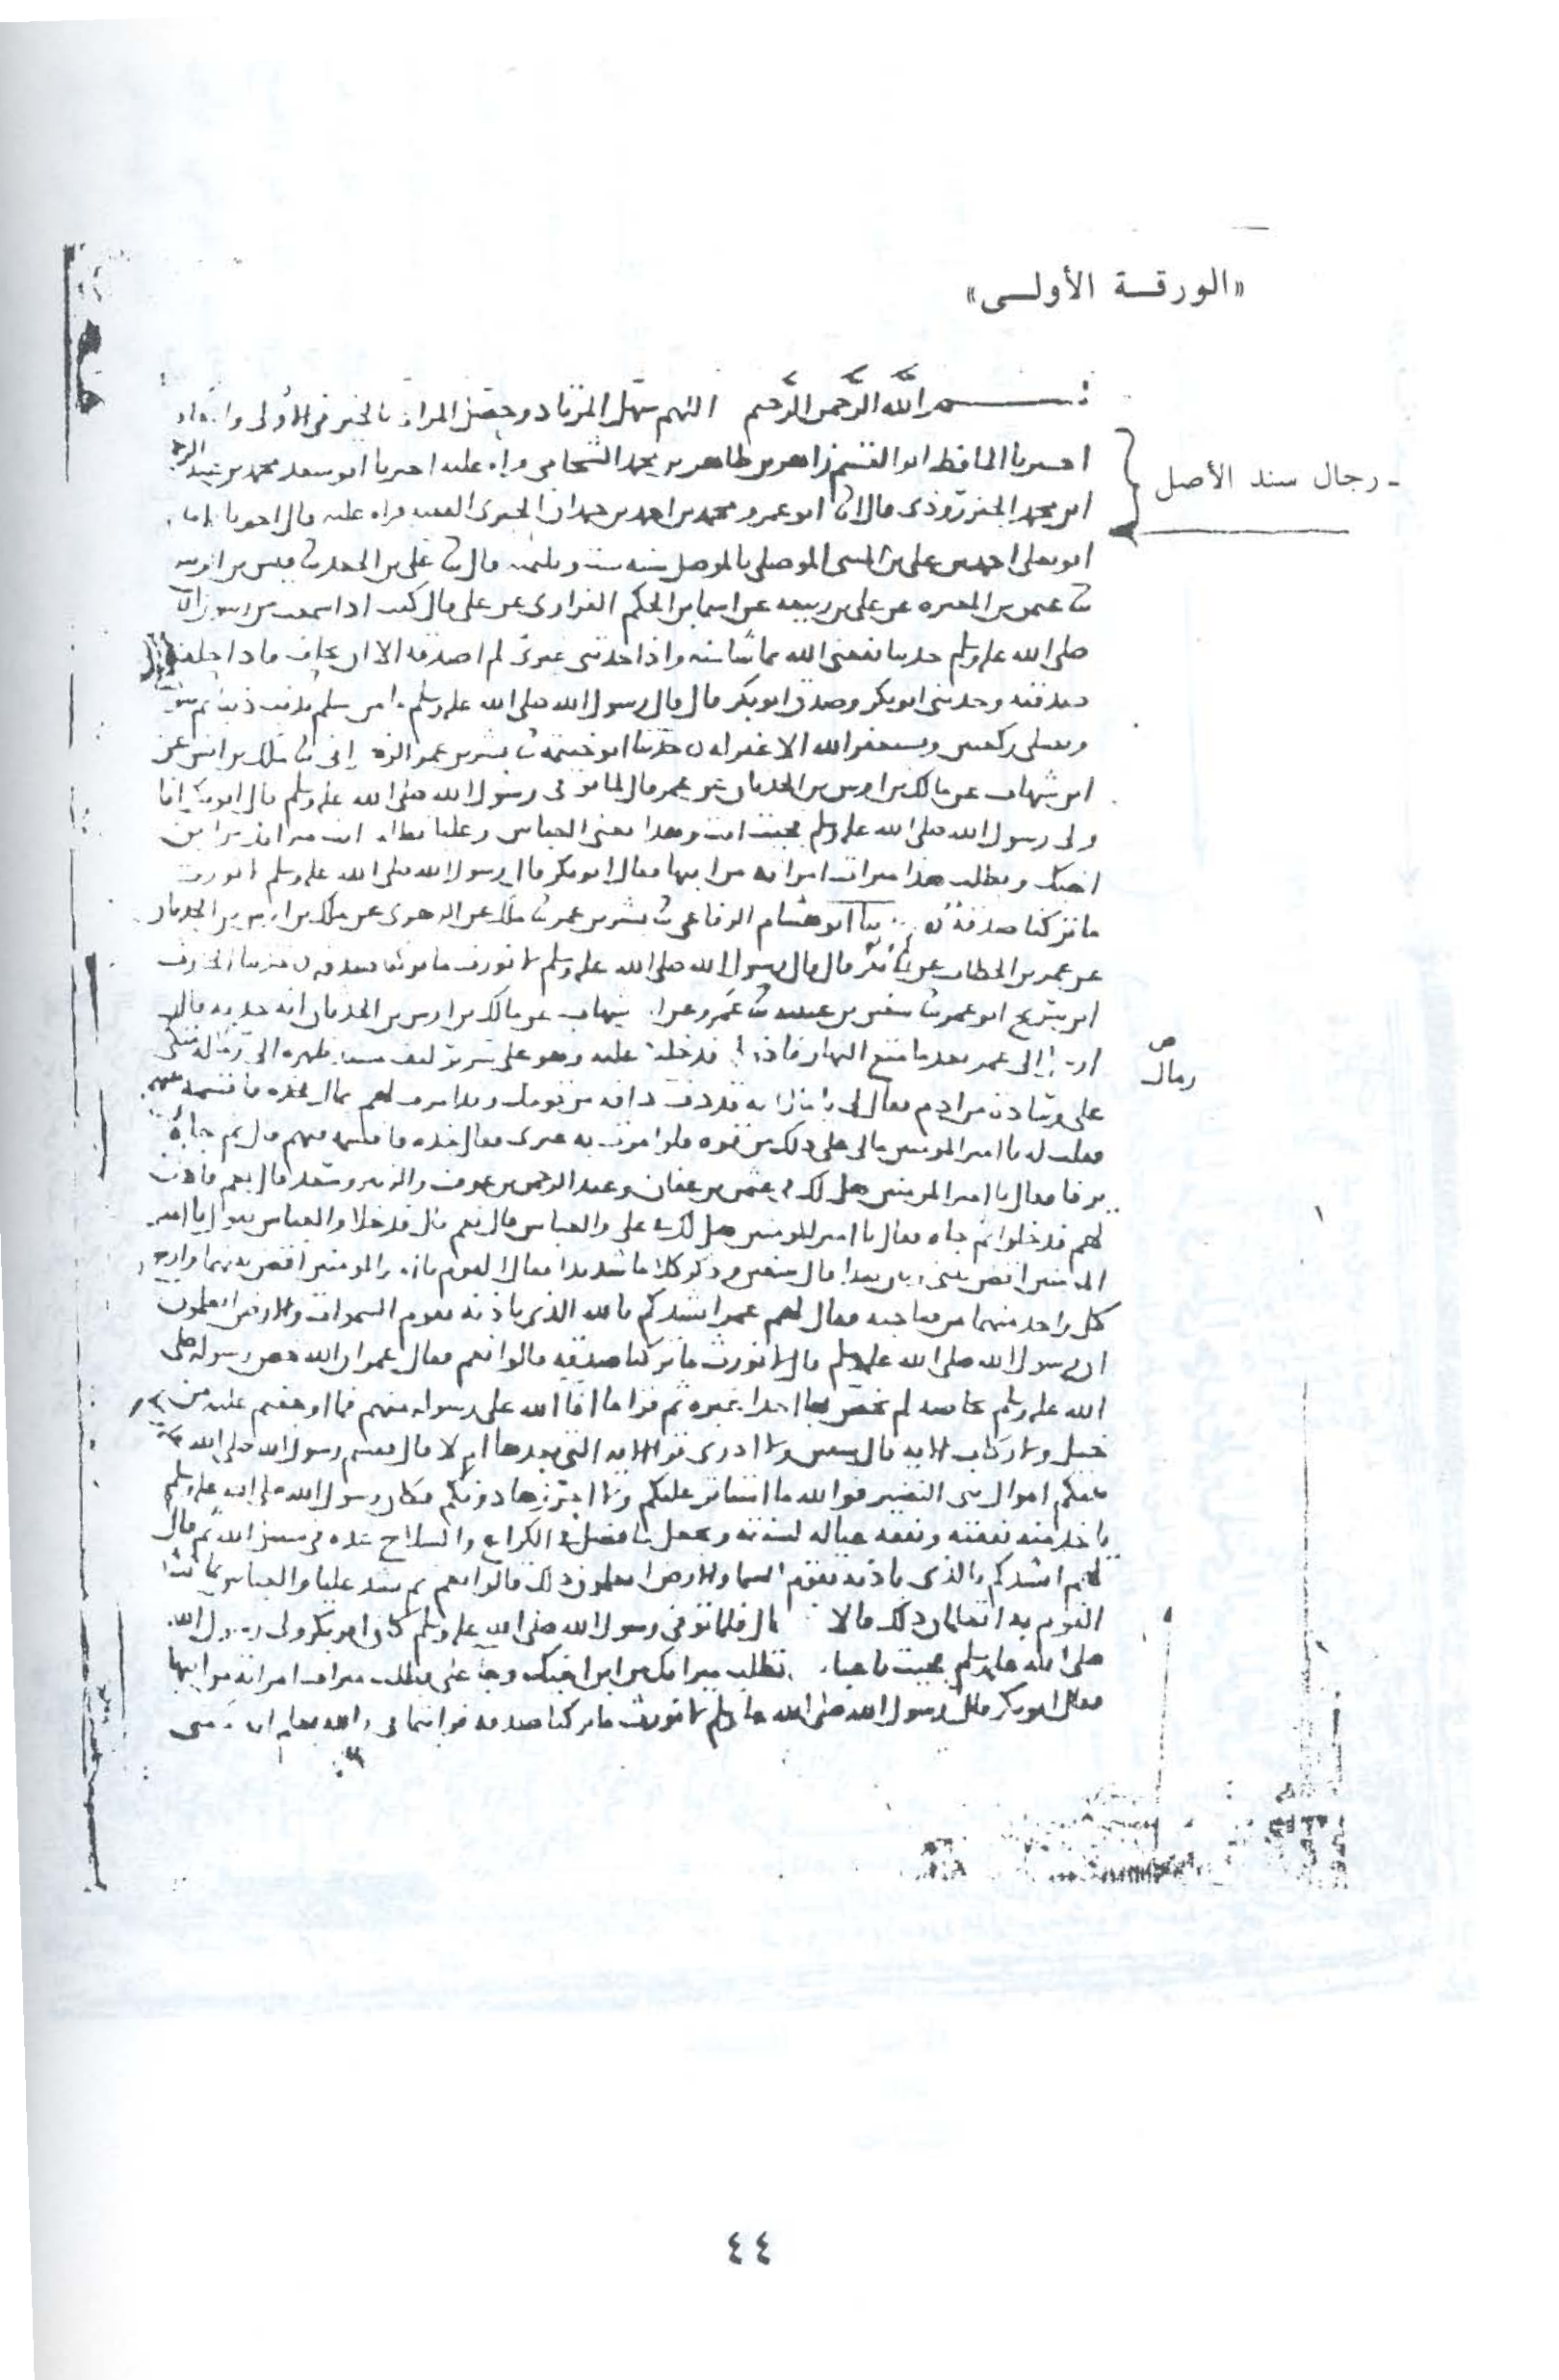 «الورقة الأولى»
بسم الله الرحمن الرحيم اللهم سهل المرتاد وحصل المراد بالخير في الأولى والمعاد
- رجال سند الأصل
اخبرنا الحافظ ابو القسم زاهر بن طاهر بن محمد الشحامي قراه عليه اخبرنا ابو سعد محمد بن عبد الرحمن
ابن محمد الجنزروذي قال انا ابو عمرو محمد بن احمد بن حمدان الحيري الفقيه قراه عليه قال اخبرنا
ابو يعلى احمد بن علي بن المثنى الموصلي بالموصل سنه ست وثلثمئه قال ثنا علي بن الجعد ثنا قيس بن الربيع
ثنا عثمن بن المغيره عن علي بن ربيعه عن اسما بن الحكم الفزاري عن علي قال كنت اذا سمعت من رسول الله
صلى الله عليه وسلم حديثا نفعني الله بما شا منه واذا حدثني غيري لم اصدقه الا ان يحلف فاذا حلف
صدقته وحدثني ابو بكر وصدق ابو بكر قال قال رسول الله صلى الله عليه وسلم ما من مسلم يذنب ذنبا ثم يتوضا
ويصلي ركعتين ويستغفر الله الا غفر له حدثنا ابو خيثمه ثنا بشر بن عمر الزهراني ثنا ملك بن انس عن
ابن شهاب عن مالك بن اوس بن الحدثان عن عمر قال لما توفي رسول الله صلى الله عليه وسلم قال ابو بكر انا
ولي رسول الله صلى الله عليه وسلم فجيت انت وهذا يعني العباس وعليا تطلب انت ميراثك من ابن
اخيك ويطلب هذا ميراث امراته من ابيها فقال ابو بكر قال رسول الله صلى الله عليه وسلم لا نورث
ما تركنا صدقه ثنا ابو هشام الرفاعي ثنا بشر بن عمر ثنا ملك عن الزهري عن ملك بن اوس بن الحدثان
عن عمر بن الخطاب عن ابي بكر قال قال رسول الله صلى الله عليه وسلم لا نورث ما تركنا صدقه حدثنا الحرث
ابن سريج ابو عمر ثنا سفين بن عيينه ثنا عمرو عن ابن شهاب عن مالك بن اوس بن الحدثان انه حدثه قال
ص
رمال
ارسل الي عمر بعدما متع النهار فاذن لي فدخلت عليه وهو على سرير ليف مسند ظهره الى رماله متكئ
على وسادة من ادم فقال لي يا مال انه قد دف دافه من قومك وقد امرت لهم بمال فخذه فاقسمه بينهم
فقلت له يا امير المومنين مالي على ذلك من قوه فلو امرت به غيري فقال خذه فاقسمه فيهم قال ثم جاه
يرفا فقال يا امير المومنين هل لك في عثمن بن عفان وعبد الرحمن بن عوف والزبير وسعد قال نعم فاذن
لهم فدخلوا ثم جاه فقال يا امير المومنين هل لك في علي والعباس قال نعم قال فدخلا والعباس يقول يا امير
المومنين اقض بيني وبين هذا قال سفين وذكر كلاما شديدا فقال القوم يا امير المومنين اقض بينهما وارح
كل واحد منهما من صاحبه فقال لهم عمر انشدكم بالله الذي باذنه تقوم السموات والارض اتعلمون
ان رسول الله صلى الله عليه وسلم قال لا نورث ما تركنا صدقه قالوا نعم فقال عمر ان الله خص رسوله صلى
الله عليه وسلم بخاصه لم يخص بها احدا غيره ثم قرا ما افا الله على رسوله منهم فما اوجفتم عليه من
خيل ولا ركاب الايه قال سفين ولا ادري قرا الايه التي بعدها ام لا قال فقسم رسول الله صلى الله
بينكم اموال بني النضير فوالله ما استاثر عليكم ولا احترزها دونكم فكان رسول الله صلى الله عليه وسلم
ياخذ منه نفقته ونفقه عياله لسنته ويجعل ما فضل في الكراع والسلاح عده في سبيل الله ثم قال
لهم انشدكم بالذي باذنه تقوم السما والارض اتعلمون ذلك قالوا نعم ثم نشد عليا والعباس بما نشد
القوم به اتعلمان ذلك قالا نعم قال فلما توفي رسول الله صلى الله عليه وسلم كان ابو بكر ولي رسول الله
صلى الله عليه وسلم فجيت يا عباس تطلب ميراثك من ابن اخيك وجا علي يطلب ميراث امراته من ابيها
فقال ابو بكر قال رسول الله صلى الله عليه وسلم لا نورث ما تركنا صدقه فرايتماني والله يعلم انه
٤٤